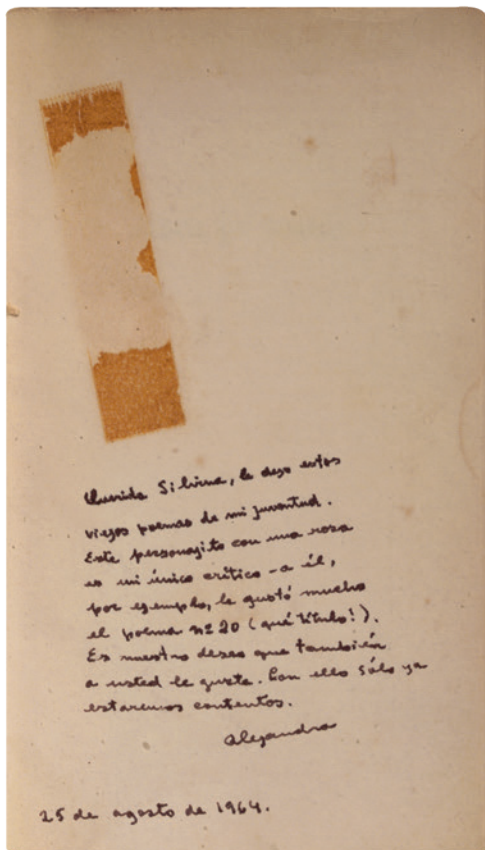 Querida Silvina, le dejo estos
viejos poemas de mi juventud.
Este personajito con una rosa
es mi único crítico – a él,
por ejemplo, le gustó mucho
el poema nº 20 (qué título!).
Es nuestro deseo que también
a usted le guste. Con ello sólo ya
estaremos contentos.
Alejandra
25 de agosto de 1964.